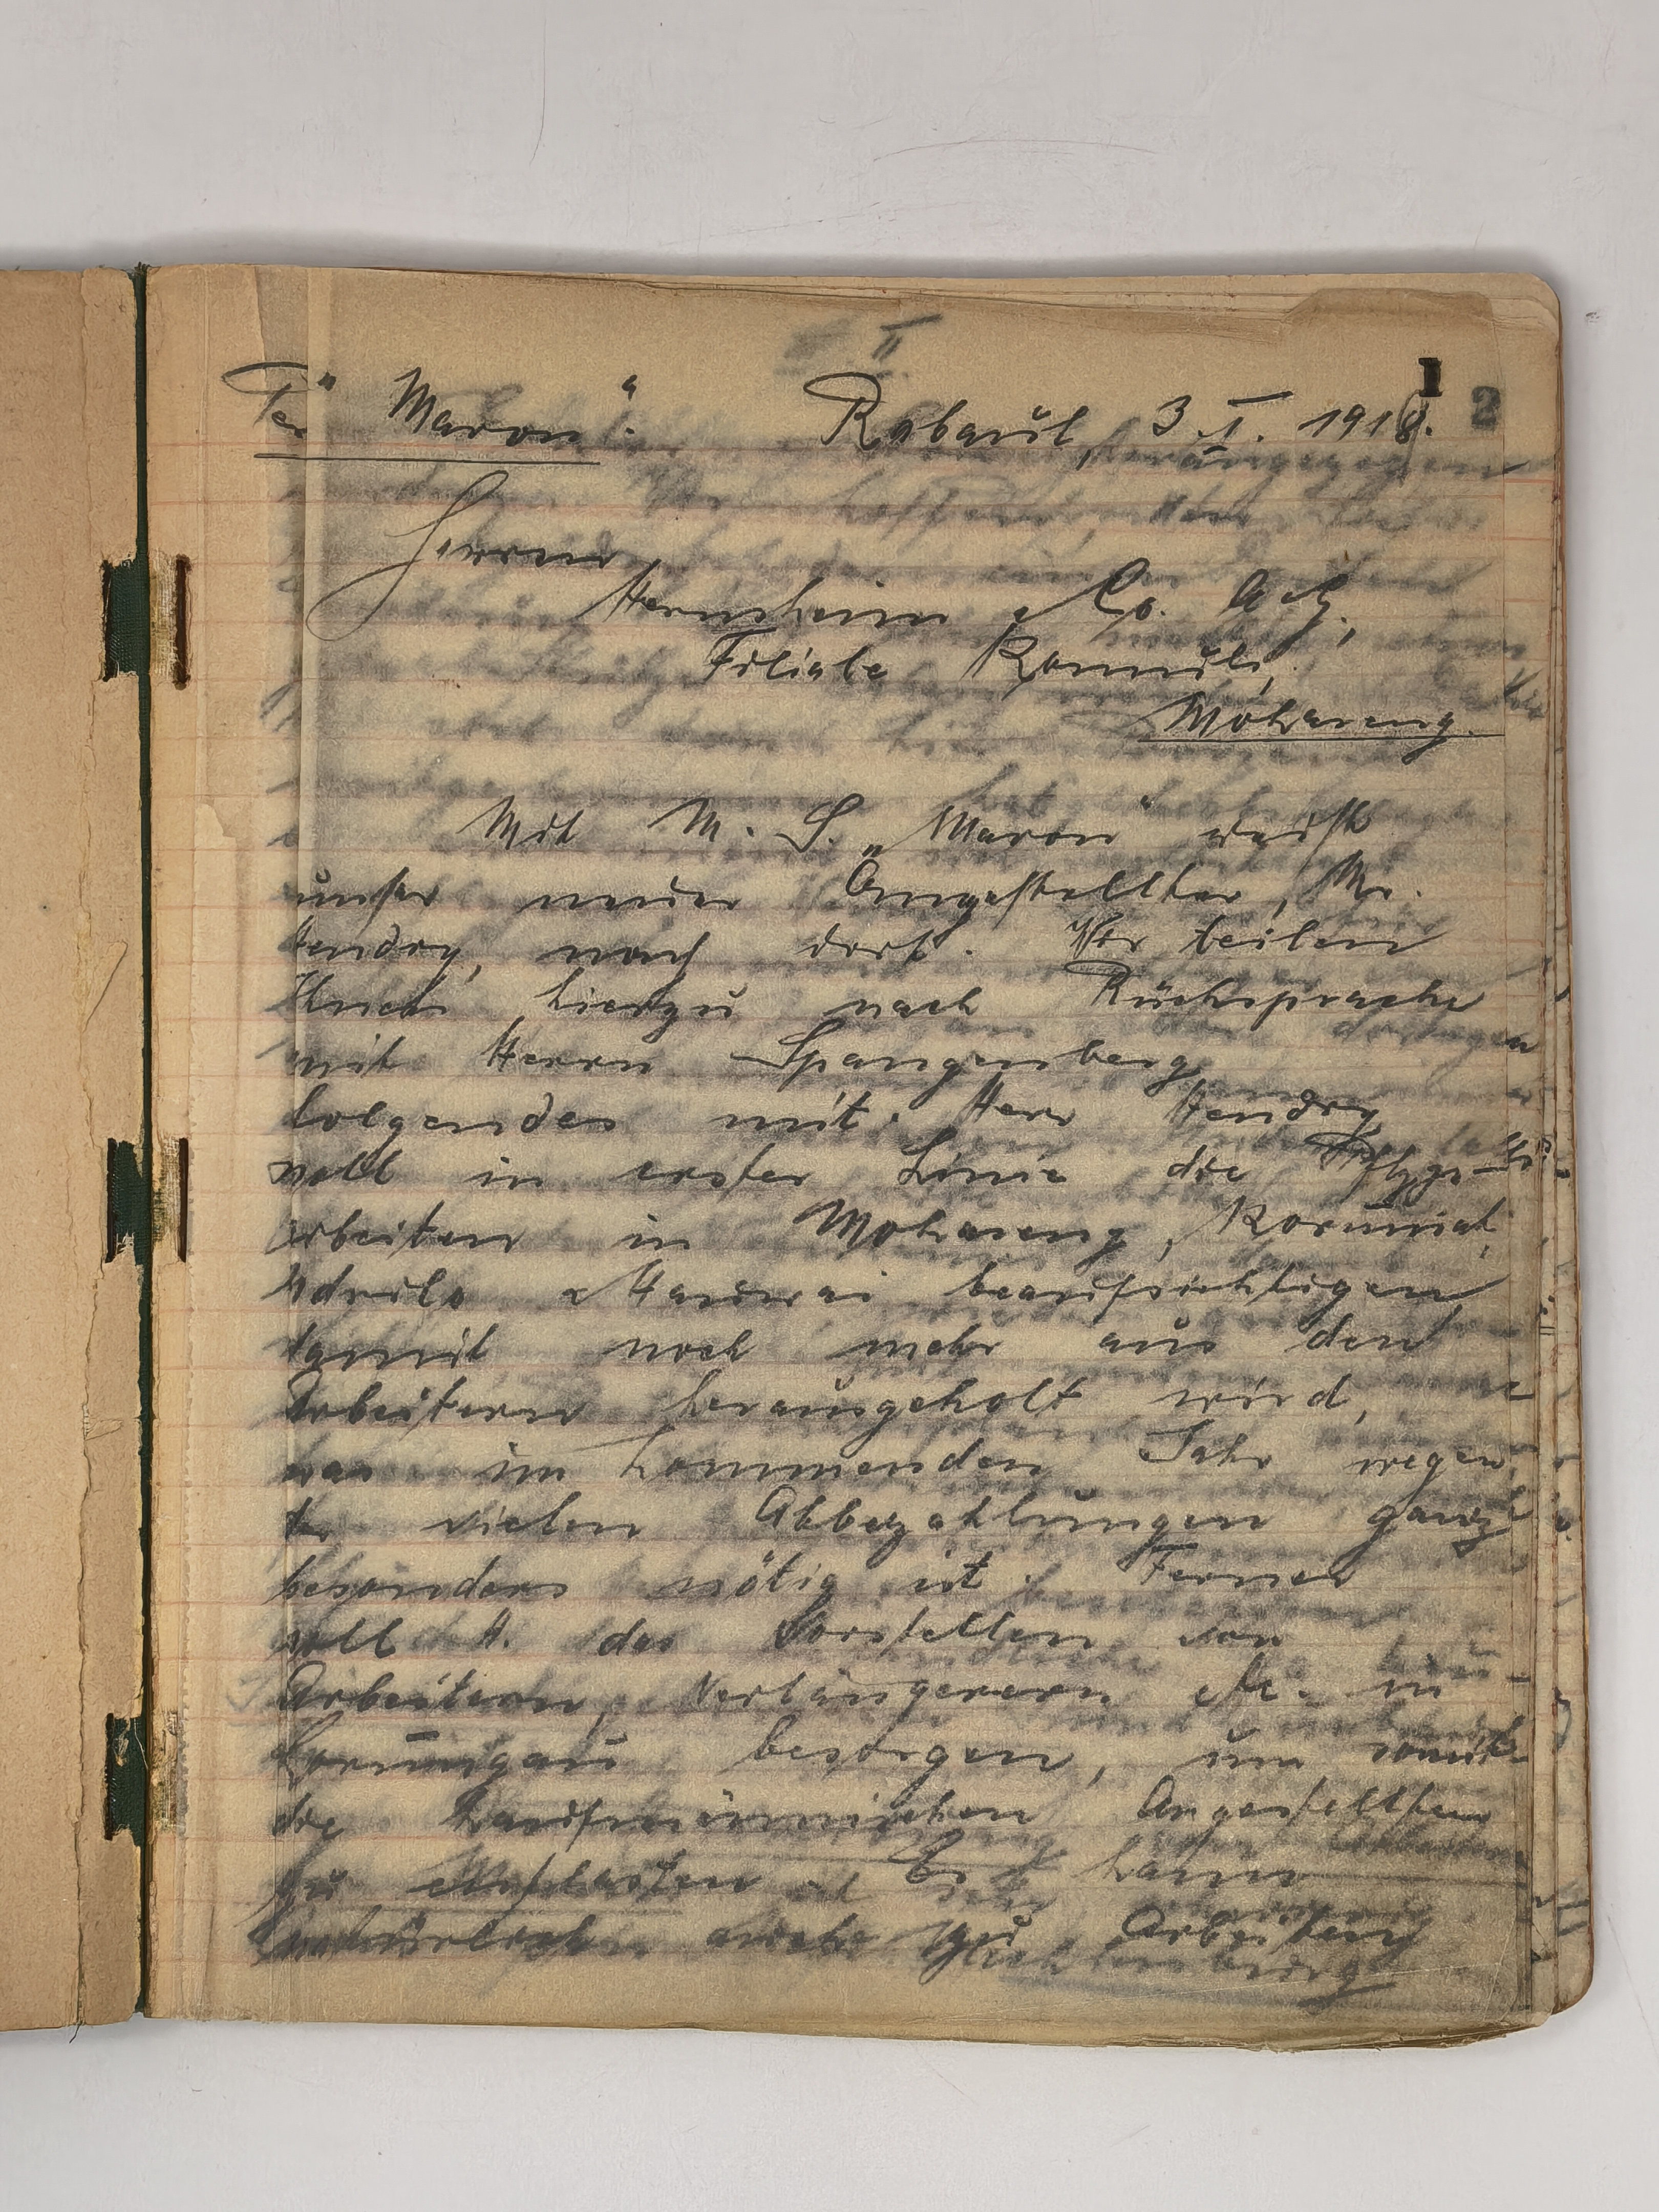 II.
1 2
Per "Maron". Rabaul, 3.I. 1918.
Herren
Hernsheim & Co. A.G.,
Filiale Komuli,
Mokareng.
Mit M. S. „Maron" reist
unser neuer Angestellter, Mr.
Hendry, nach dort. Wir teilen
Ihnen hierzu nach Rücksprache
mit Herrn Spangenberg
folgendes mit. Herr Hendry
soll in erster Linie die
arbeiten in Mokareng, Koruniat,
Ndrilo & Hauwai beaufsichtigen,
damit noch mehr aus den
Arbeitern herausgeholt wird,
was im kommenden Jahr wegen
der vielen Abbezahlungen ganz
besonders nötig ist. Ferner
soll H. das Vorstellen von
Arbeitern, Verlängerern etc. in
Lorungau besorgen, um somit
die kaufmännischen Angestellten
zu entlasten. Er kann
natürlich auch zu Arbeiten